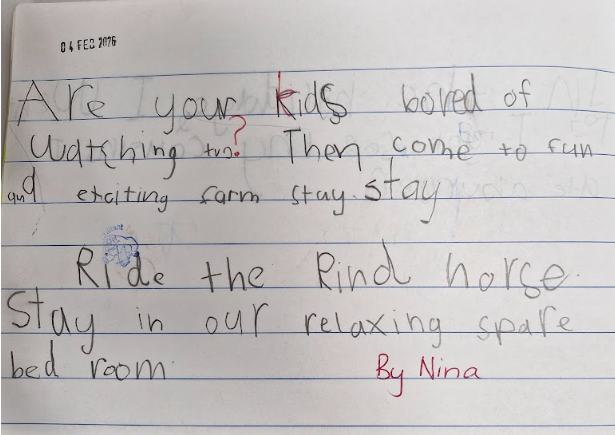 04 FEB 2026
Are your kids bored of
watching tvn? Then come to fun
and exciting farm stay. stay
Ride the Rind horse.
Stay in our relaxing spare
bed room.
By Nina